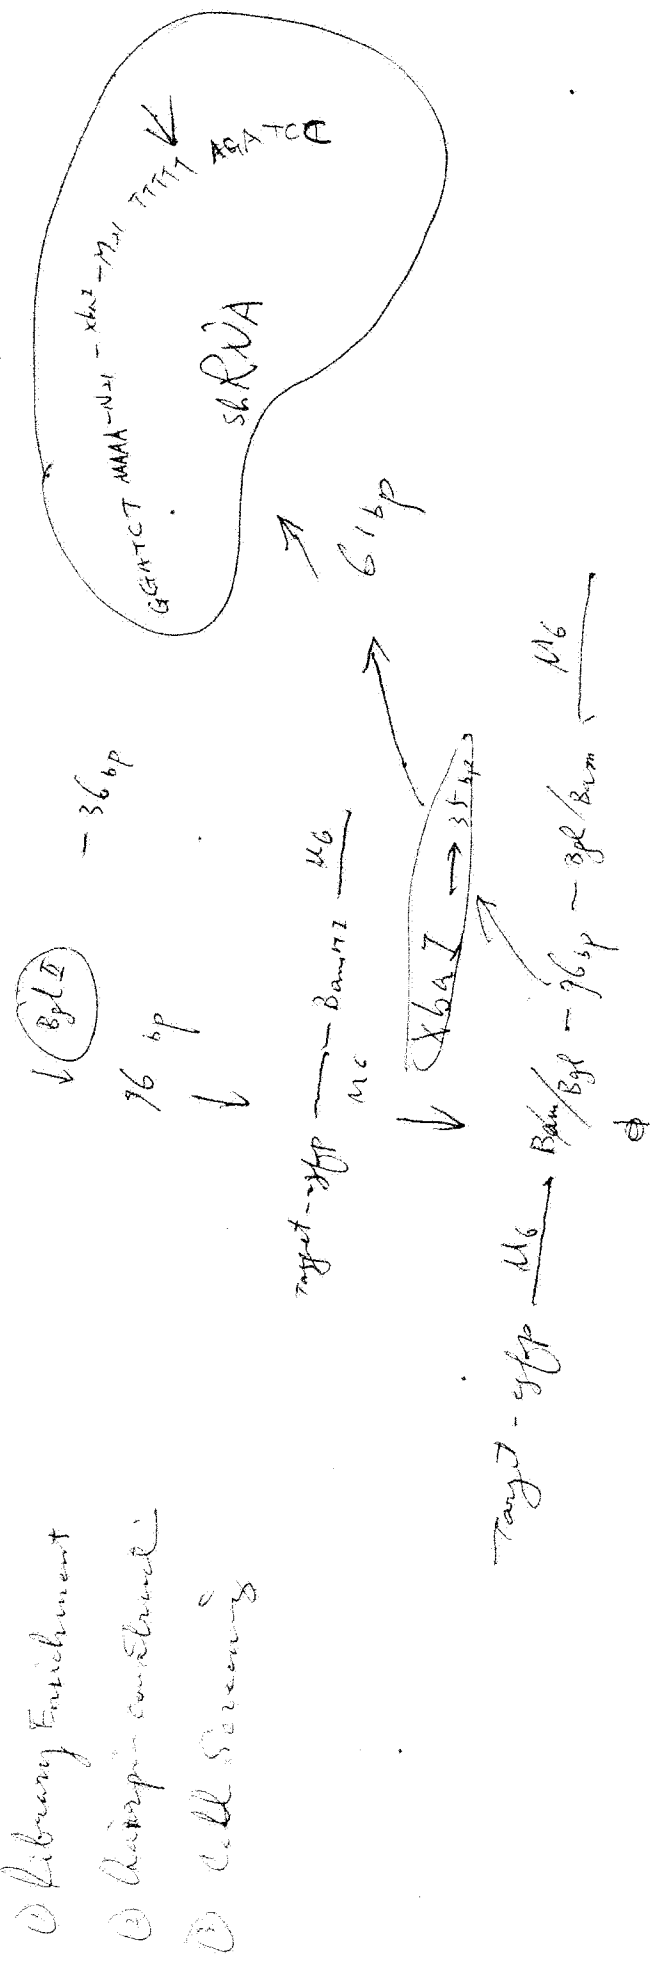 ① Library Enrichment
② Hairpin-construct
③ Cell Screening
↓ Bgl II
96 bp
- 36 bp
↓
Target-egfp — BamHI — U6
↓ XbaI → 35 bp
61 bp
Target-egfp — U6 — Bam/Bgl — 96 bp — Bgl/Bam — U6
GGATCT AAAA-N21-XbaI-N21 TTTTT AGATCC
shRNA